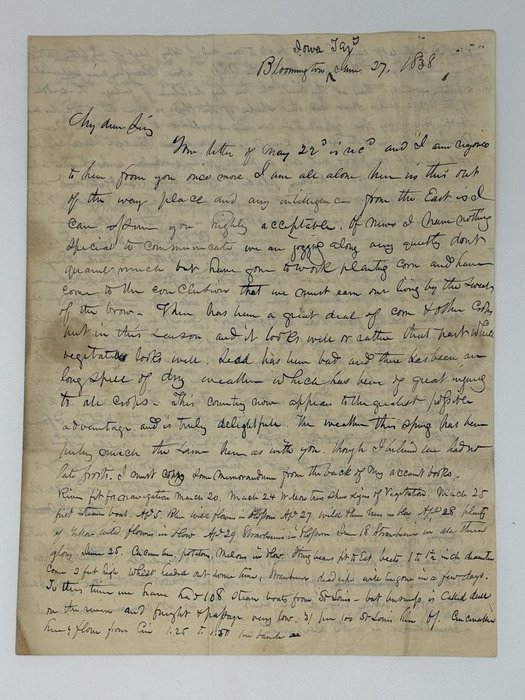 Iowa Ty
Bloomington June 27. 1838
My dear Sir
Your letter of May 22d is recd and I am rejoiced
to hear from you once more I am all alone here in this out
of the way place and any intelligence from the East is I
can assure you highly acceptable. Of news I have nothing
special to communicate we are jogging along very quietly dont
quarrel much but have gone to work planting corn and have
come to the conclusion that we must earn our living by the sweat
of the brow - There has been a great deal of corn & other Crops
put in this season and it looks well or rather that part which
vegetated looks well. Seed has been bad and there has been an
long spell of dry weather which has been of great injury
to all crops. This country now appears to the greatest possible
advantage and is truly delightful. The weather this spring has been
pretty much the same here as with you, though I believe we had no
late frosts. I must copy some memorandum from the back of my account books.
River fit for navigation March 20. March 24 Willows then shew signs of Vegetation. March 25
first steam boat. Apl 5. Blue wild flowers in blossom Apl 27 wild Plum trees in blow. Apl 28 plenty
of yellow wild flowers in blow Apl 29 Strawberries in blossom June 18 Strawberries in all their
glory. June 25. Cucumber, potatoes, Melons in blow. Young pears fit to Eat, beets 1 to 1½ inch diameter
Corn 3 feet high Wheat headed out some time, Strawberries will be gone in a few days.
To this time we have had 108 steam boats from St Louis - but business is called dull
on the river and freight & passage very low. 31 per 100 St Louis
here & flour from Cin 1.25 to 1.50 per barrel